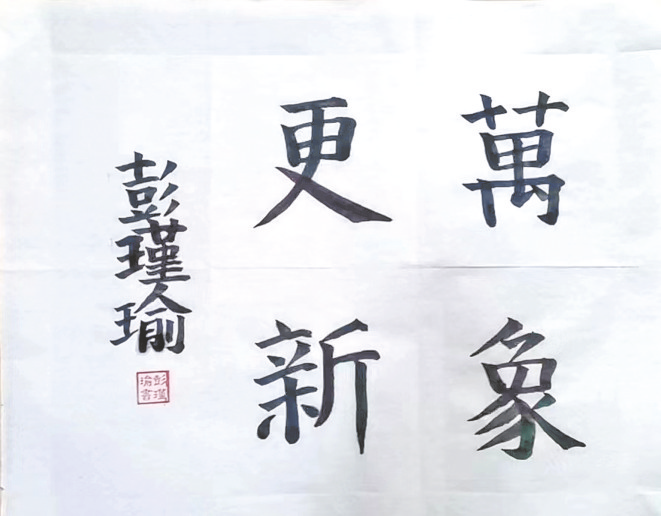 萬象
更新
彭瑾瑜
彭瑾
瑜書